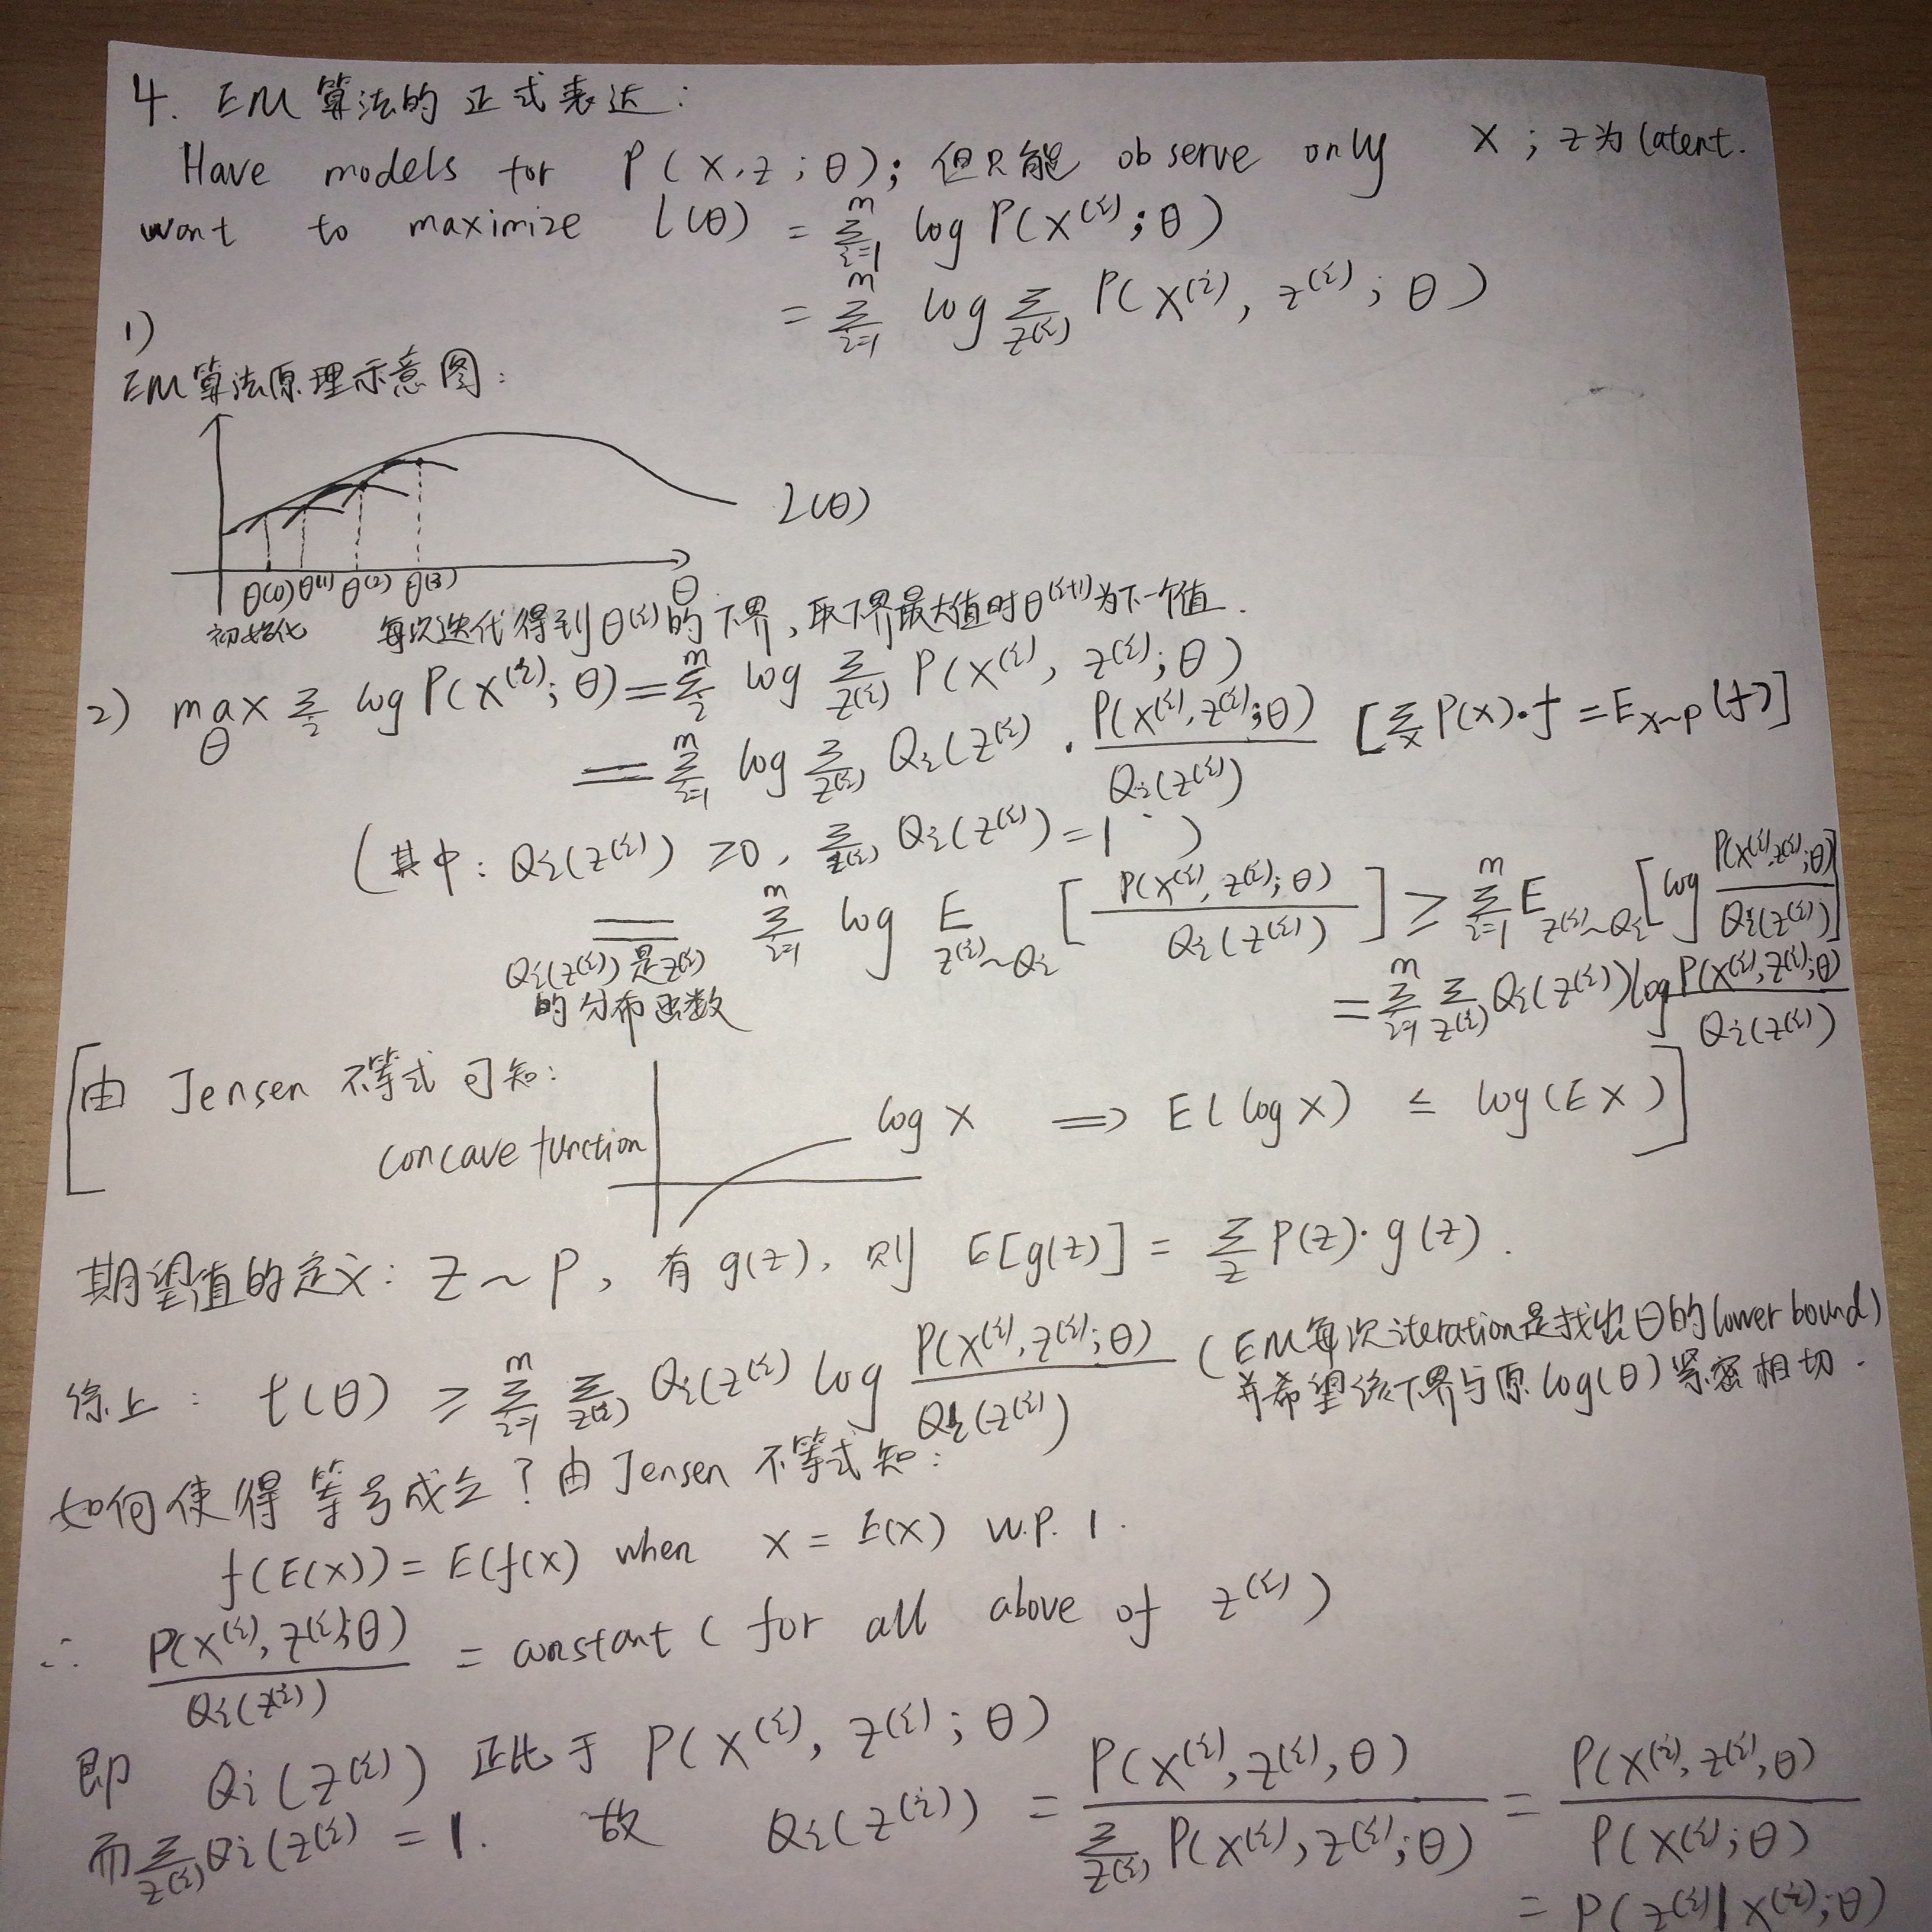 4. EM算法的正式表达:
Have models for P(x,z;θ); 但只能 observe only x; z为latent.
want to maximize l(θ) = Σ_{i=1}^m log P(x^(i);θ)
= Σ_{i=1}^m log Σ_{z^(i)} P(x^(i), z^(i); θ)
1)
EM算法原理示意图:
L(θ)
θ(0) θ(1) θ(2) θ(3) θ
初始化 每次迭代得到θ^(i)的下界, 取下界最大值时θ^(i+1)为下一个值.
2) max_θ Σ_i log P(x^(i);θ) = Σ_i^m log Σ_{z^(i)} P(x^(i), z^(i);θ)
= Σ_{i=1}^m log Σ_{z^(i)} Q_i(z^(i)) · P(x^(i),z^(i);θ) / Q_i(z^(i)) [Σ_x P(x)·f = E_{x~p}(f)]
(其中: Q_i(z^(i)) ≥0, Σ_{z^(i)} Q_i(z^(i)) = 1)
= Σ_{i=1}^m log E_{z^(i)~Q_i} [P(x^(i), z^(i);θ) / Q_i(z^(i))] ≥ Σ_{i=1}^m E_{z^(i)~Q_i} [log P(x^(i),z^(i);θ) / Q_i(z^(i))]
Q_i(z^(i))是z^(i)
的分布函数
= Σ_{i=1}^m Σ_{z^(i)} Q_i(z^(i)) log P(x^(i),z^(i);θ) / Q_i(z^(i))
[由 Jensen 不等式可知:
concave function log x ⇒ E(log x) ≤ log(EX)]
期望值的定义: Z ~ P, 有 g(z), 则 E[g(z)] = Σ_z P(z)·g(z).
综上: l(θ) ≥ Σ_{i=1}^m Σ_{z^(i)} Q_i(z^(i)) log P(x^(i),z^(i);θ) / Q_i(z^(i)) (EM每次iteration是找出θ的lower bound)
并希望该下界与原log(θ)紧密相切.
如何使得等号成立? 由Jensen 不等式知:
f(E(x)) = E(f(x) when x = E(x) w.p. 1.
∴ P(x^(i), z^(i);θ) / Q_i(z^(i)) = constant ( for all above of z^(i))
即 Q_i(z^(i)) 正比于 P(x^(i), z^(i); θ)
而 Σ_{z^(i)} Q_i(z^(i)) = 1. 故 Q_i(z^(i)) = P(x^(i),z^(i),θ) / Σ_{z^(i)} P(x^(i),z^(i);θ) = P(x^(i),z^(i),θ) / P(x^(i);θ)
= P(z^(i)|x^(i);θ)